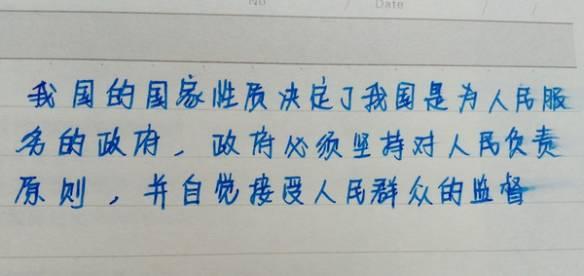 No / Date / /
我国的国家性质决定了我国是为人民服
务的政府，政府必须坚持对人民负责
原则，并自觉接受人民群众的监督